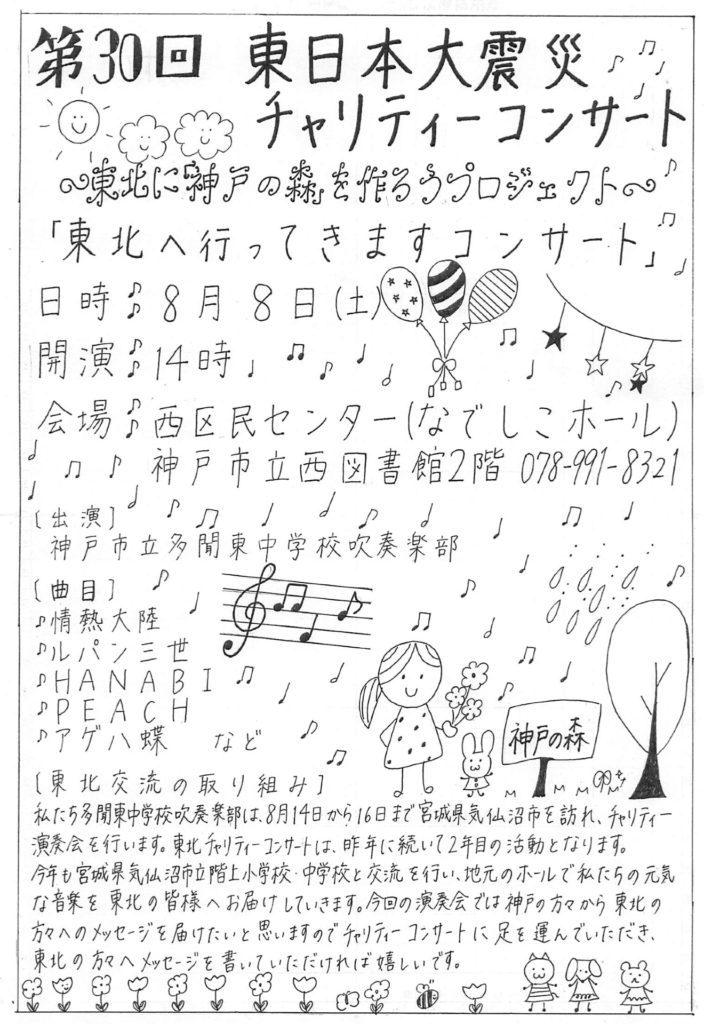 第30回 東日本大震災
チャリティーコンサート
～東北に「神戸の森」を作ろうプロジェクト～
「東北へ行ってきますコンサート」
日時：8月8日(土)
開演：14時
会場：西区民センター(なでしこホール)
神戸市立西図書館2階 078-991-8321
〔出演〕
神戸市立多聞東中学校吹奏楽部
〔曲目〕
♪情熱大陸
♪ルパン三世
♪HANABI
♪PEACH
♪アゲハ蝶 など
神戸の森
〔東北交流の取り組み〕
私たち多聞東中学校吹奏楽部は、8月14日から16日まで宮城県気仙沼市を訪れ、チャリティー
演奏会を行います。東北チャリティーコンサートは、昨年に続いて2年目の活動となります。
今年も宮城県気仙沼市立階上小学校・中学校と交流を行い、地元のホールで私たちの元気
な音楽を東北の皆様へお届けしていきます。今回の演奏会では神戸の方々から東北の
方々へのメッセージを届けたいと思いますのでチャリティーコンサートに足を運んでいただき、
東北の方々へメッセージを書いていただければ嬉しいです。